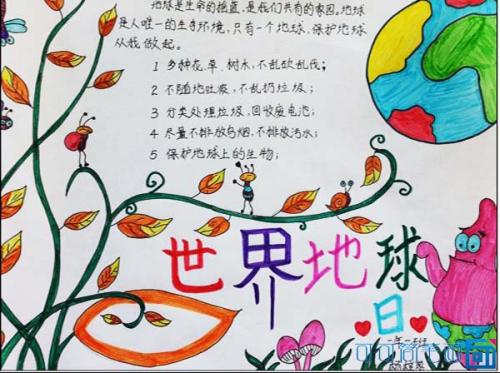 地球是生命的摇蓝,是我们共有的家园。地球
是人唯一的生存环境,只有一个地球,保护地球
从我做起。
1 多种花、草、树木,不乱砍乱伐;
2 不随地吐痰,不乱扔垃圾;
3 分类处理垃圾,回收废电池;
4 尽量不排放乌烟,不排放污水;
5 保护地球上的生物;
世界地球
日
一年一班